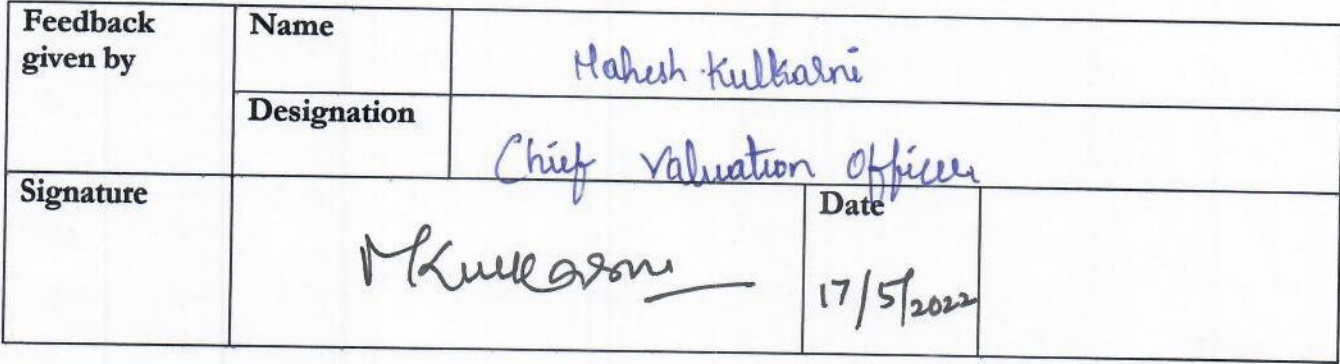 Feedback given by Name Mahesh Kulkarni
Designation Chief Valuation Officer
Signature MKulkarni Date 17/5/2022